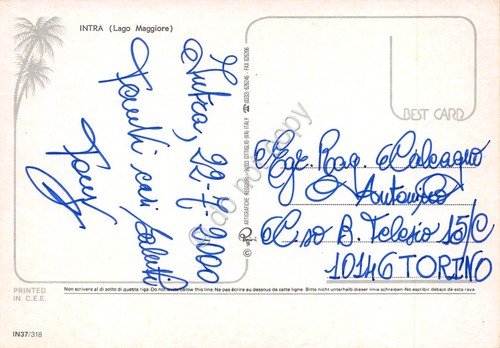 INTRA (Lago Maggiore)
Intra, 22-7-2000
Tanti cari saluti
BEST CARD
Egr. Rag. Calcagno
Antonino
C.so B. Telesio 15/C
10146 TORINO
PRINTED
IN C.E.E.
Non scrivere al di sotto di questa riga - Do not write below this line - Ne pas écrire au dessous de cette ligne - Bitte nicht unterhalb dieser linie schreiben - No escribir debajo de esta raya
IN37/318
do not copy